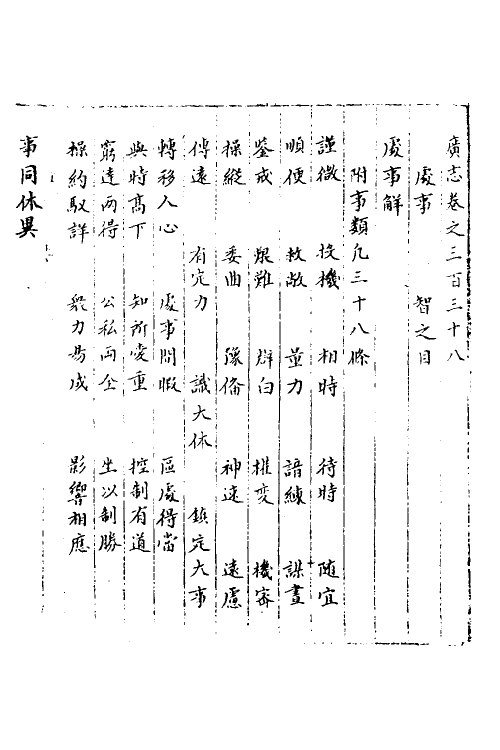 廣志卷之三百三十八
處事　智之目
處事解
附事類凡三十八條
謹微　投機　相時　待時　隨宜
順便　救敝　量力　諳練　謀畫
鑒戒　艱難　辨白　權變　機審
操縱　委曲　豫俻　神速　遠慮
傳遠　有定力　識大体　鎮定大事
轉移人心　處事閒暇　區處得當
與時髙下　知所愛重　控制有道
窮達両得　公私両全　坐以制勝
操約馭詳　衆力易成　影響相應
事同体異